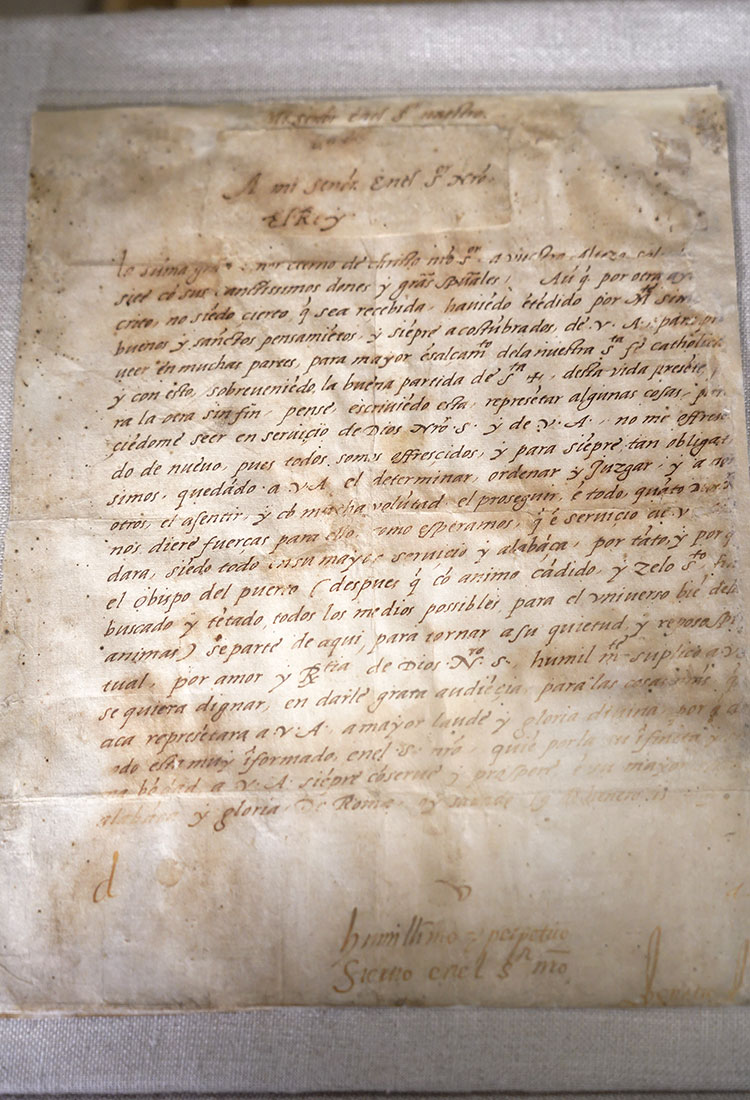 Mi señor enel sor nuestro.
A mi señor Enel sor Nro
El Rey
la suma gra eterno de christo nro sor a vuestra Alteza sal
siēre cō sus sanctissimos dones y gr̃as spũales. Aũ q̄ por otra aya
crito, no siēdo cierto q̄ sea recebida, haviēdo ētēdido por
buenos y sanctos pensamiētos, y siēpre acostūbrados, de v. A. para
ueer en muchas partes, para mayor ēsalcamto dela nuestra sta fe catholica
y con esto, sobreveniēdo, la buena partida de sta +, desta vida presēte,
ra la otra sin fin, pensé escriviēdo esta, represētar algunas cosas, pare
ciēdome seer en servicio de Dios Nro. s. y de v. A., no me offres
do de nuevo, pues todos somos offrescidos, y para siēpre tan obligad
simos, quedādo a v. A el determinar, ordenar y Juzgar, y a
otros, el asentir, y cō mucha volūtad el proseguir, ē todo, quāto Dios
nos diere fuercas para ello. como esperamos, q̄ ē servicio de v
dara, siēdo todo ensu mayor servicio y alabāca, por tāto, y por q
el Obispo del puerto (despues q̄ cō animo cādido, y zelo sto, ha
buscado y tētado, todos los medios possibles para el universo biē delas
animas) separte de aqui, para tornar a su quietud, y reposo spi
tual, por amor y Rtia de Dios Nro. s., humil mte suplico a v.
se quiera dignar, en darle grata audiēcia para las cosas q
aca represētara a v. A, a mayor laude y gloria divina, por q
odo esta muy iformado, enel s. nro, quiē por la su ifinita y
ma bōdad a v. A siēpre cōserve y prospere ē su mayor
alabāca y gloria, De Roma,
humillimo y perpetuo
Siervo enel sor nro